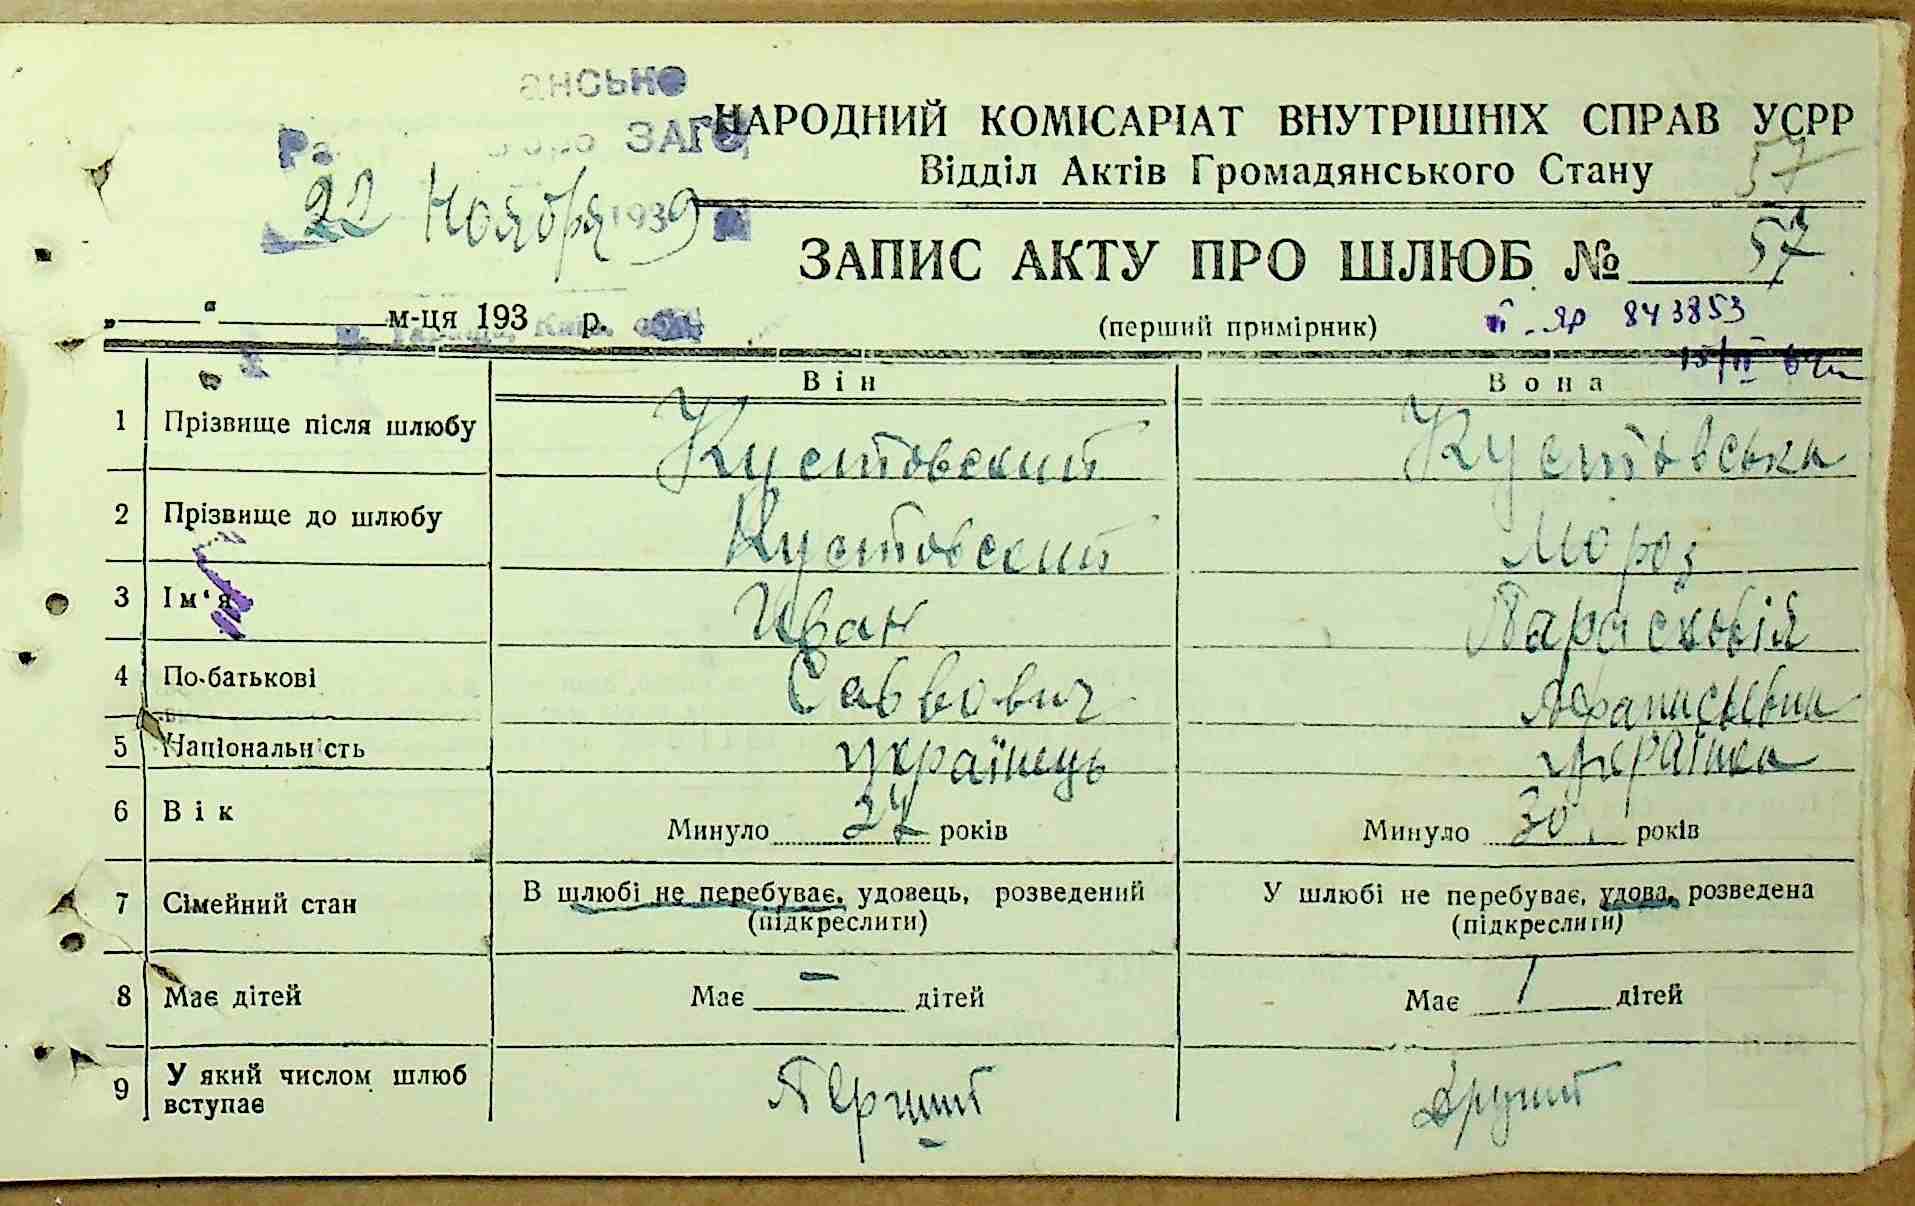 НАРОДНИЙ КОМІСАРІАТ ВНУТРІШНІХ СПРАВ УСРР
Відділ Актів Громадянського Стану
57
ЗАГС
22 Ноября 1939
ЗАПИС АКТУ ПРО ШЛЮБ № 57
„ “ м-ця 193 р.
(перший примірник)
ЯР 843853
Він Вона
1 Прізвище після шлюбу Кустовский Кустовська
2 Прізвище до шлюбу Кустовский Мороз
3 Ім‘я Иван Парасковія
4 По-батькові Саввович
5 Національність українець українка
6 Вік Минуло років Минуло 30 років
7 Сімейний стан В шлюбі не перебуває, удовець, розведений У шлюбі не перебуває, удова, розведена
(підкреслити) (підкреслити)
8 Має дітей Має – дітей Має 1 дітей
9 У який числом шлюб вступає Перший другий